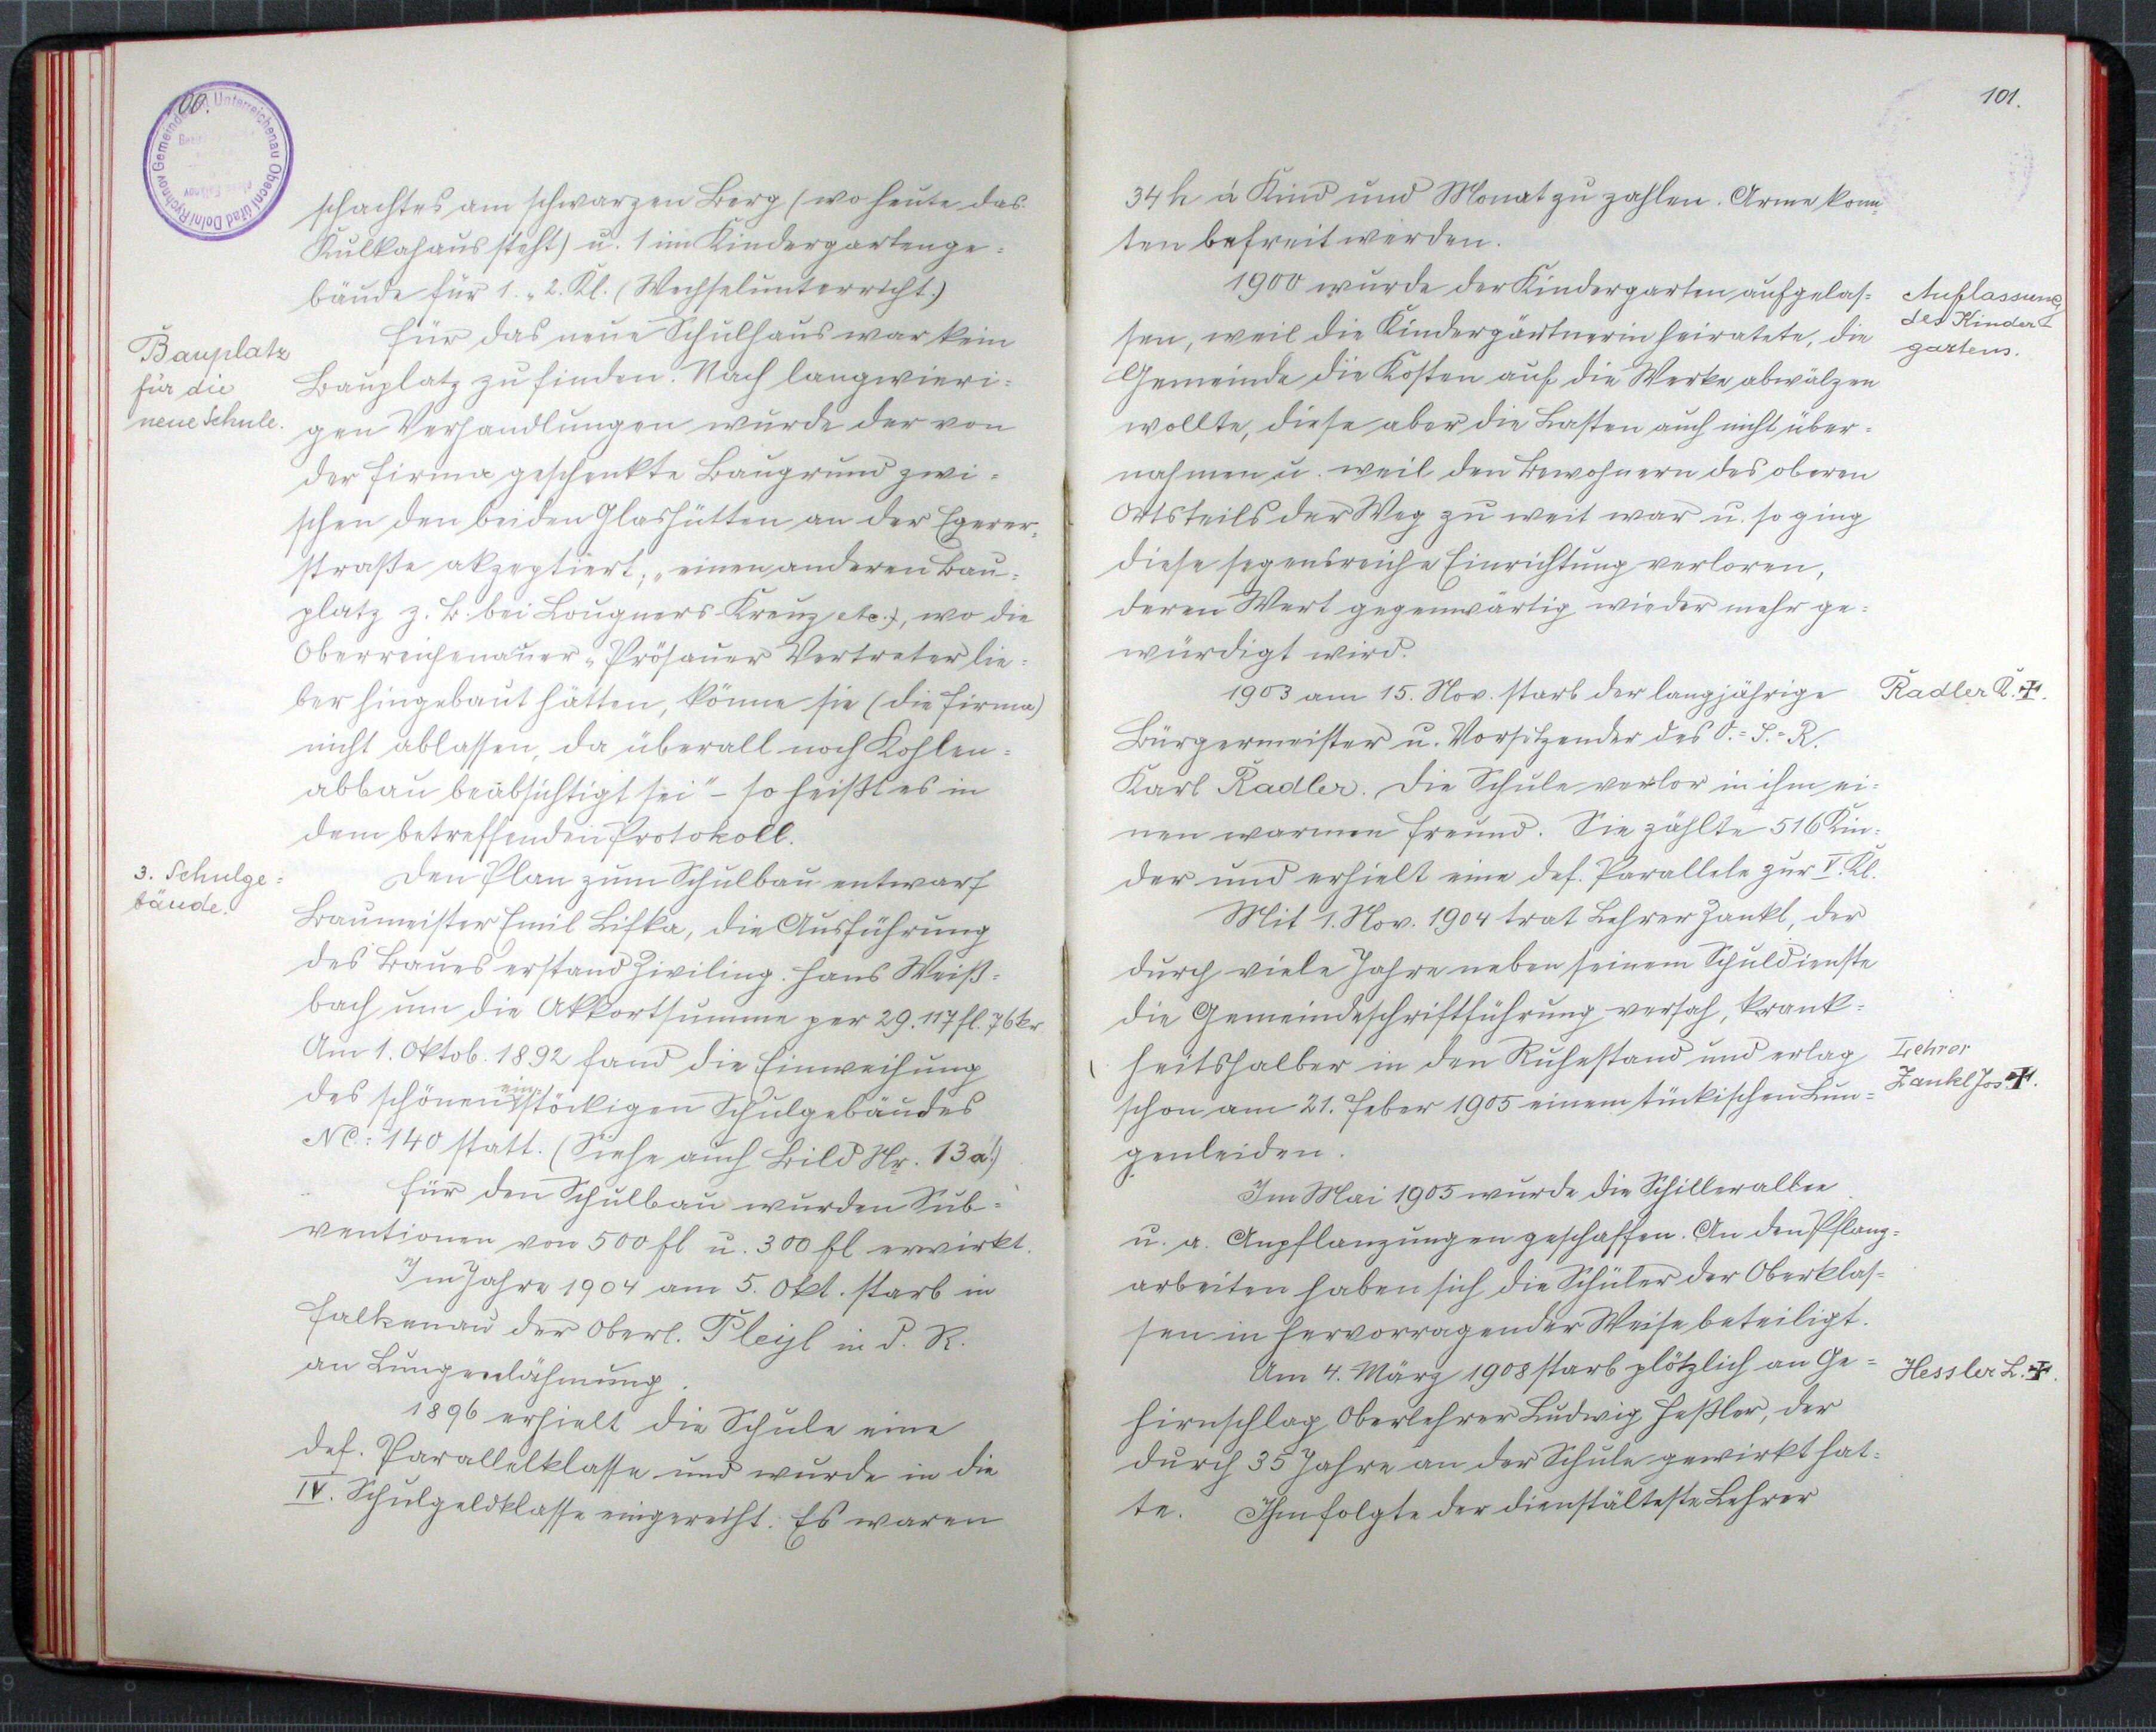 100.
Gemeindeamt Unterreichenau Obecní úřad Dolní Rychnov
schachtes am schwarzen Berg (wo heute das
Kulkahaus steht) u. 1 im Kindergartenge=
bäude für 1. „ 2. Kl. (Wechselunterricht.)
Bauplatz
für die
neue Schule.
Für das neue Schulhaus war kein
Bauplatz zu finden. Nach langwieri=
gen Verhandlungen wurde der von
der Firma geschenkte Baugrund zwi=
schen den beiden Glashütten an der Egerer=
straße akzeptiert; „einen anderen Bau=
platz z. B. bei Lougners Kreuz etc.), wo die
Oberreichenauer „ Prösauer Vertreter lie=
ber hingebaut hätten, könne sie (die Firma)
nicht ablassen, da überall noch Kohlen=
abbau beabsichtigt sei" – so heißt es in
dem betreffenden Protokoll.
3. Schulge=
bäude.
Den Plan zum Schulbau entwarf
Baumeister Emil Lifka, die Ausführung
des Baues erstand Ziviling. Hans Weiß=
bach um die Akkortsumme per 29.117 fl. 76 kr
Am 1. Oktob. 1892 fand die Einweihung
des schönen einstöckigen Schulgebäudes
NC: 140 statt. (Siehe auch Bild Nr. 13a!)
Für den Schulbau wurden Sub=
ventionen von 500 fl u. 300 fl erwirkt.
Im Jahre 1904 am 5. Okt. starb in
Falkenau der Oberl. Pleyl in d. R.
an Lungenlähmung.
1896 erhielt die Schule eine
def. Parallelklasse und wurde in die
IV. Schulgeldklasse eingereiht. Es waren
101.
34 h à Kind und Monat zu zahlen. Arme konn=
ten befreit werden.
Auflassung
des Kinder=
gartens.
1900 wurde der Kindergarten aufgelas=
sen, weil die Kindergärtnerin heiratete, die
Gemeinde die Kosten auf die Werke abwälzen
wollte, diese aber die Lasten auch nicht über=
nahmen u. weil den Bewohnern des oberen
Ortsteils der Weg zu weit war u. so ging
diese segensreiche Einrichtung verloren,
deren Wert gegenwärtig wieder mehr ge=
würdigt wird.
Radler K. ✠.
1903 am 15. Nov. starb der langjährige
Bürgermeister u. Vorsitzender des O.=S.=R.
Karl Radler. Die Schule verlor in ihm ei=
nen warmen Freund. Sie zählte 516 Kin=
der und erhielt eine def. Parallele zur V. Kl.
Mit 1. Nov. 1904 trat Lehrer Zankl, der
durch viele Jahre neben seinem Schuldienste
die Gemeindeschriftführung versah, krank=
heitshalber in den Ruhestand und erlag
schon am 21. Feber 1905 einem tückischen Lun=
genleiden.
Lehrer
Zankl Jos. ✠.
Im Mai 1905 wurde die Schillerallee
u. a. Anpflanzungen geschaffen. An den Pflanz=
arbeiten haben sich die Schüler der Oberklas=
sen in hervorragender Weise beteiligt.
Hessler L. ✠.
Am 4. März 1908 starb plötzlich an Ge=
hirnschlag Oberlehrer Ludwig Heßler, der
durch 35 Jahre an der Schule gewirkt hat=
te. Ihm folgte der dienstälteste Lehrer